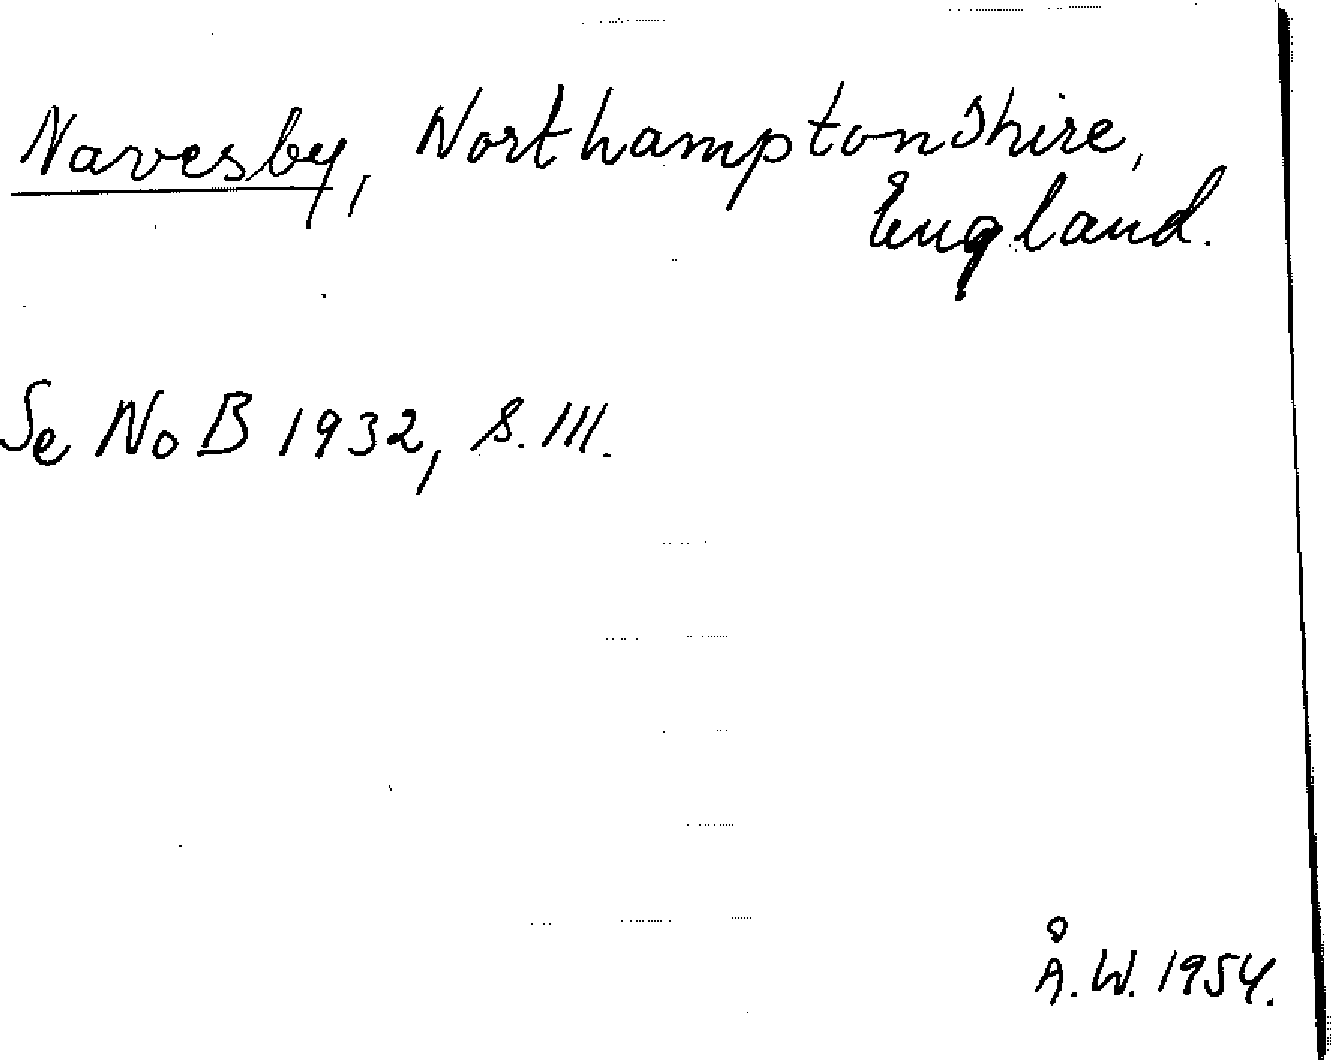 Navesby, Northamptonshire,
England.
Se NoB 1932, s. 111.
Å.W. 1954.